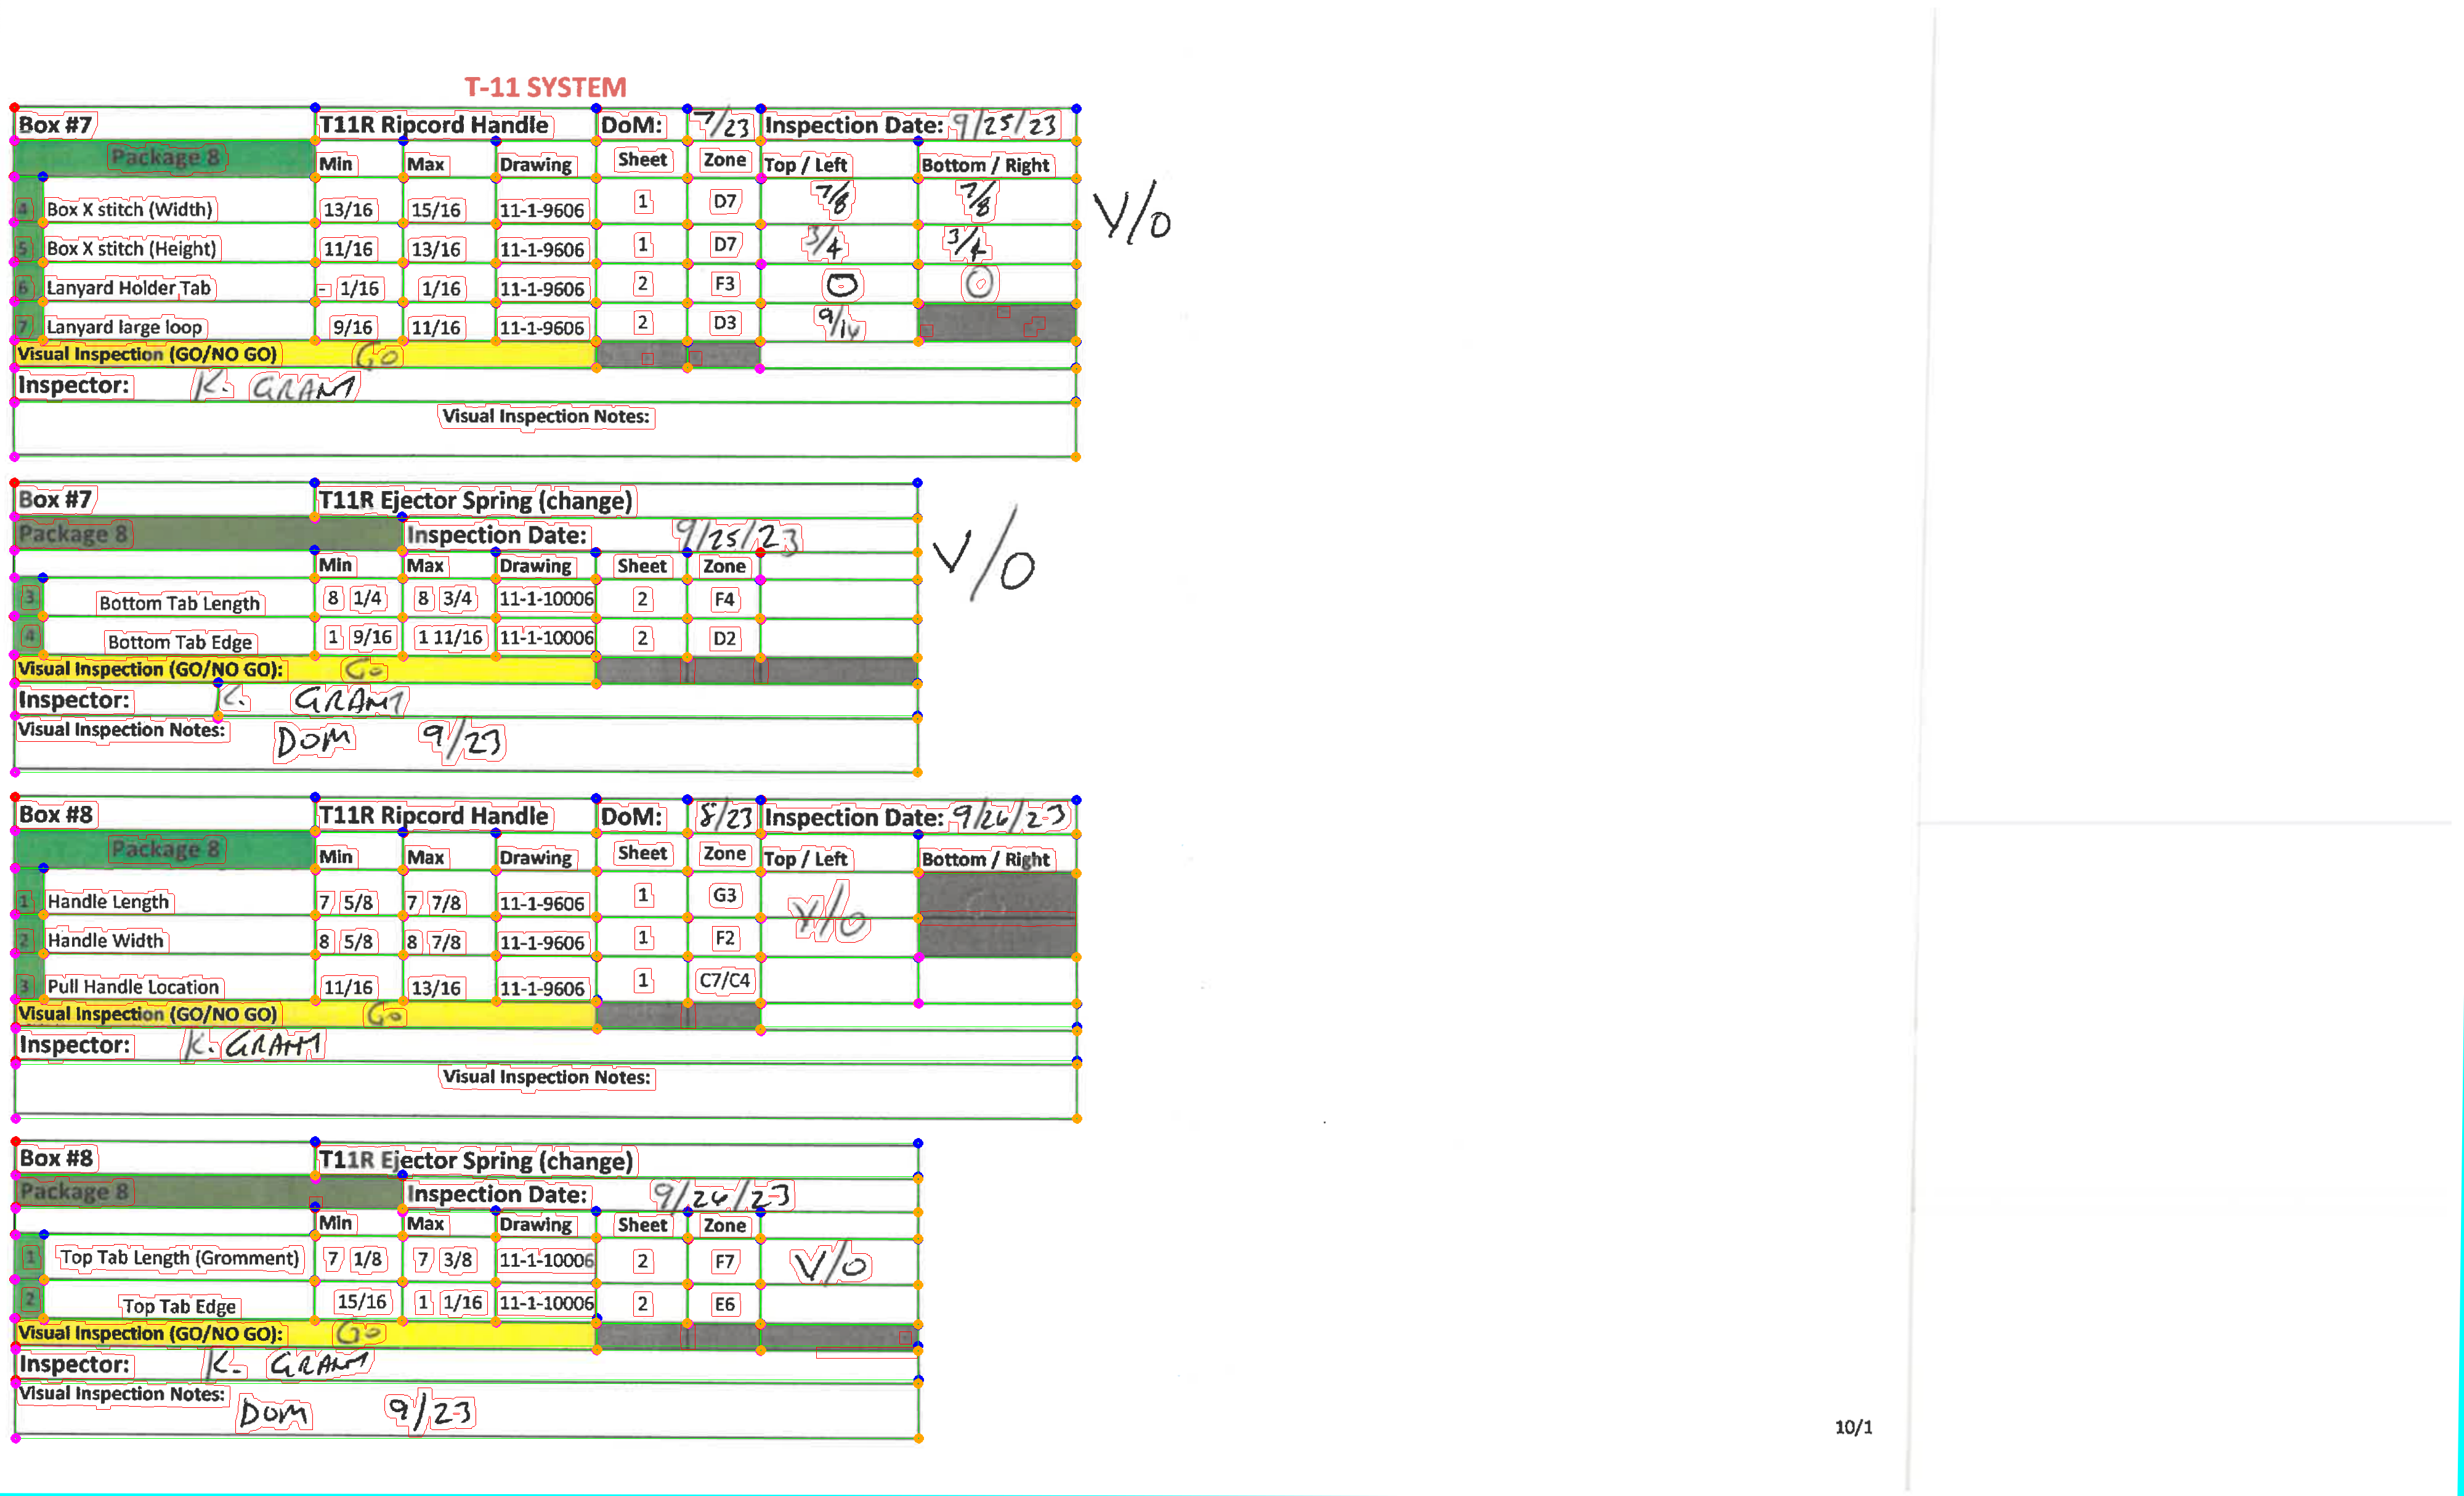 T-11 SYSTEM
Box #7 T11R Ripcord Handle DoM: 7/23 Inspection Date: 9/25/23
Package 8 Min Max Drawing Sheet Zone Top / Left Bottom / Right
4 Box X stitch (Width) 13/16 15/16 11-1-9606 1 D7 7/8 7/8 V/O
5 Box X stitch (Height) 11/16 13/16 11-1-9606 1 D7 3/4 3/4
6 Lanyard Holder Tab - 1/16 1/16 11-1-9606 2 F3 0 0
7 Lanyard large loop 9/16 11/16 11-1-9606 2 D3 9/16
Visual Inspection (GO/NO GO) GO
Inspector: K. GRANT
Visual Inspection Notes:
Box #7 T11R Ejector Spring (change)
Package 8 Inspection Date: 9/25/23 V/O
Min Max Drawing Sheet Zone
3 Bottom Tab Length 8 1/4 8 3/4 11-1-10006 2 F4
4 Bottom Tab Edge 1 9/16 1 11/16 11-1-10006 2 D2
Visual Inspection (GO/NO GO): GO
Inspector: K. GRANT
Visual Inspection Notes: DOM 9/23
Box #8 T11R Ripcord Handle DoM: 8/23 Inspection Date: 9/26/23
Package 8 Min Max Drawing Sheet Zone Top / Left Bottom / Right
1 Handle Length 7 5/8 7 7/8 11-1-9606 1 G3 V/O
2 Handle Width 8 5/8 8 7/8 11-1-9606 1 F2
3 Pull Handle Location 11/16 13/16 11-1-9606 1 C7/C4
Visual Inspection (GO/NO GO) GO
Inspector: K. GRANT
Visual Inspection Notes:
Box #8 T11R Ejector Spring (change)
Package 8 Inspection Date: 9/26/23
Min Max Drawing Sheet Zone
1 Top Tab Length (Gromment) 7 1/8 7 3/8 11-1-10006 2 F7 V/O
2 Top Tab Edge 15/16 1 1/16 11-1-10006 2 E6
Visual Inspection (GO/NO GO): GO
Inspector: K. GRANT
Visual Inspection Notes: DOM 9/23
10/1